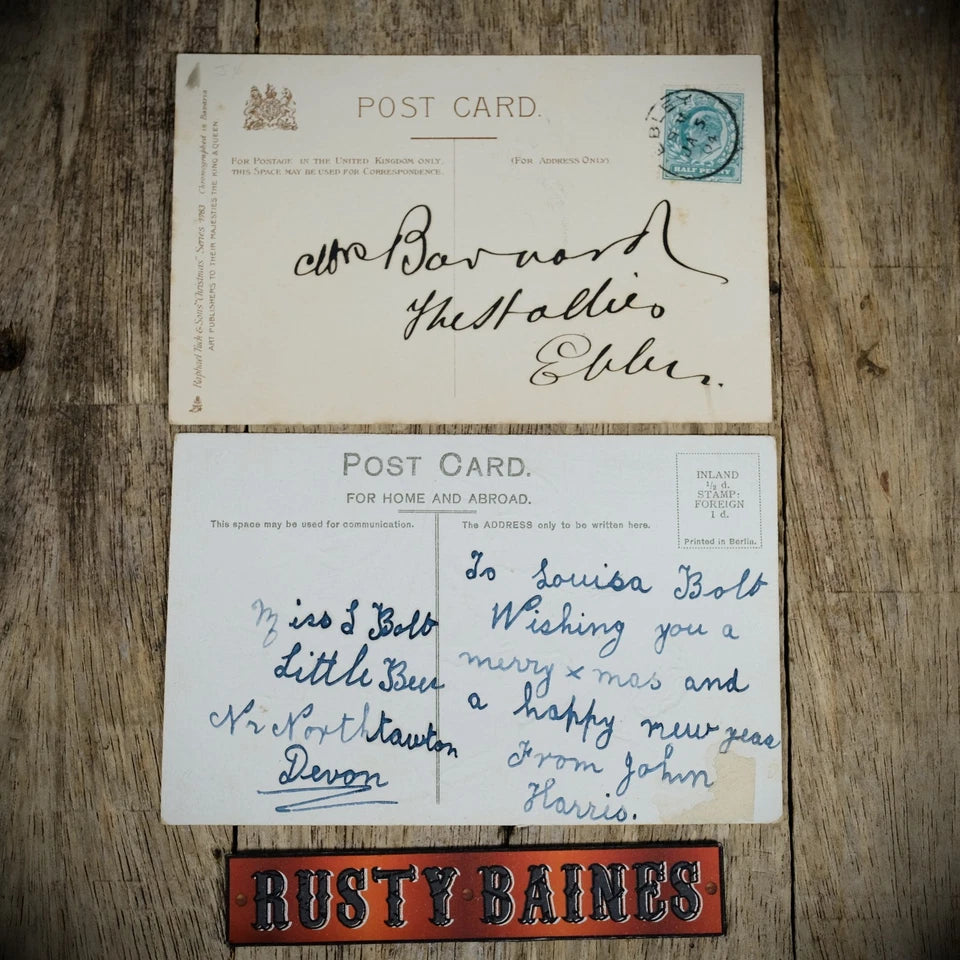 POST CARD.
FOR POSTAGE IN THE UNITED KINGDOM ONLY,
THIS SPACE MAY BE USED FOR CORRESPONDENCE.
(FOR ADDRESS ONLY)
HALF PENNY
BLEY
JA 5
Raphael Tuck & Sons' "Christmas" Series 1783 Chromographed in Bavaria
ART PUBLISHERS TO THEIR MAJESTIES THE KING & QUEEN.
Mrs Barnard
The Hollies
POST CARD.
FOR HOME AND ABROAD.
This space may be used for communication.
The ADDRESS only to be written here.
INLAND
½ d.
STAMP:
FOREIGN
1 d.
Printed in Berlin.
Miss L Bolt
Little Beer
Nr Northtawton
Devon
To Louisa Bolt
Wishing you a
merry x mas and
a happy new year
From John
Harris.
RUSTY BAINES